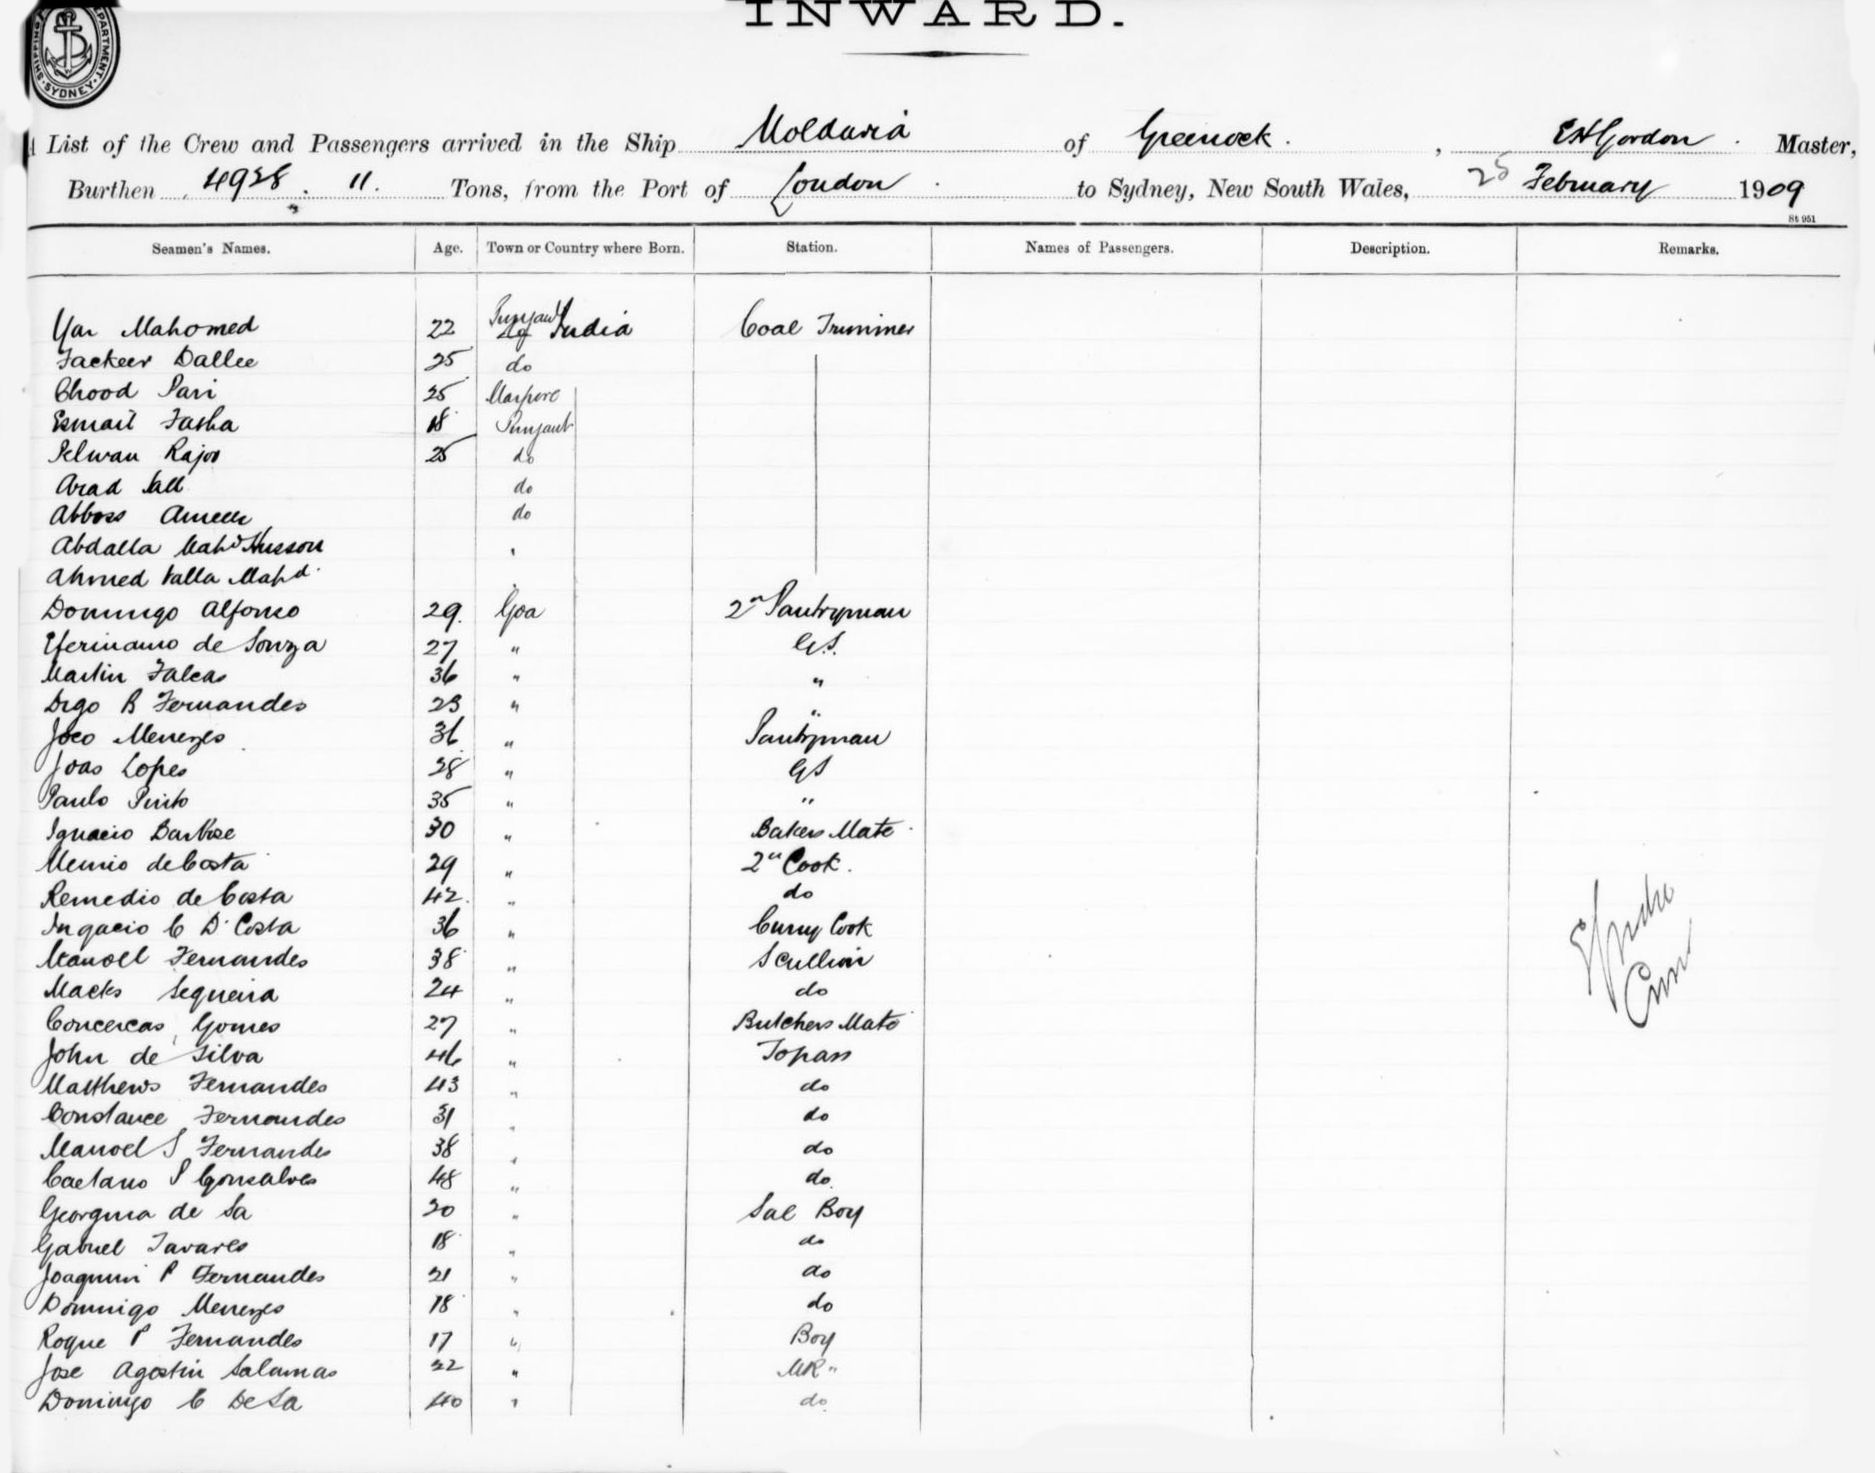 SHIPPING DEPARTMENT. SYDNEY.
INWARD.
List of the Crew and Passengers arrived in the Ship Moldavia of Greenock. , E H Gordon . Master,
Burthen 4928 . 11. Tons, from the Port of London . to Sydney, New South Wales, 25 February 1909
St 951
Seamen's Names. Age. Town or Country where Born. Station. Names of Passengers. Description. Remarks.
Yar Mahomed 22 Punjaub India Coal Trimmer
Fackeer Dallee 25 do
Chood Pari 25
Esmail Tasha 18 Punjaub
Pelwan Rajoo 25 do
Arad do
Abboss Ameer do
Abdalla Mahd Husson
Ahmed Valla Mahd.
Domingo Alfonso 29. Goa 2n Pantryman
de Souza 27 " G.S.
Martin Falcao 36 " "
Digo B Fernandes 23 " "
Joco Menezes 36 " Pantryman
Joas Lopes 28 " GS
Paulo Pinto 35 " "
Ignacio Barboze 30 " Bakers Mate
de Costa 29 " 2n Cook.
Remedio de Costa 42. " do
Ingacio C D'Costa 36 " Curry Cook
Manoel Fernandes 38 " Scullion
Macks Sequeira 24 " do
Concercas Gomes 27 " Butchers Mate
John de Silva 46 " Topass
Matthews Fernandes 43 " do
Constance Fernandes 31 " do
Manoel S Fernandes 38 " do
Caetano P Gonsalves 48 " do.
Georgina de Sa 20 " Sal Boy
Gabriel Tavares 18 " do
Joaquim P Fernandes 21 " do
Domnigo Menezes 18 " do
Roque P Fernandes 17 " Boy
Jose Agostin Salamas 22 " MR "
Domingo C De Sa 40 " do